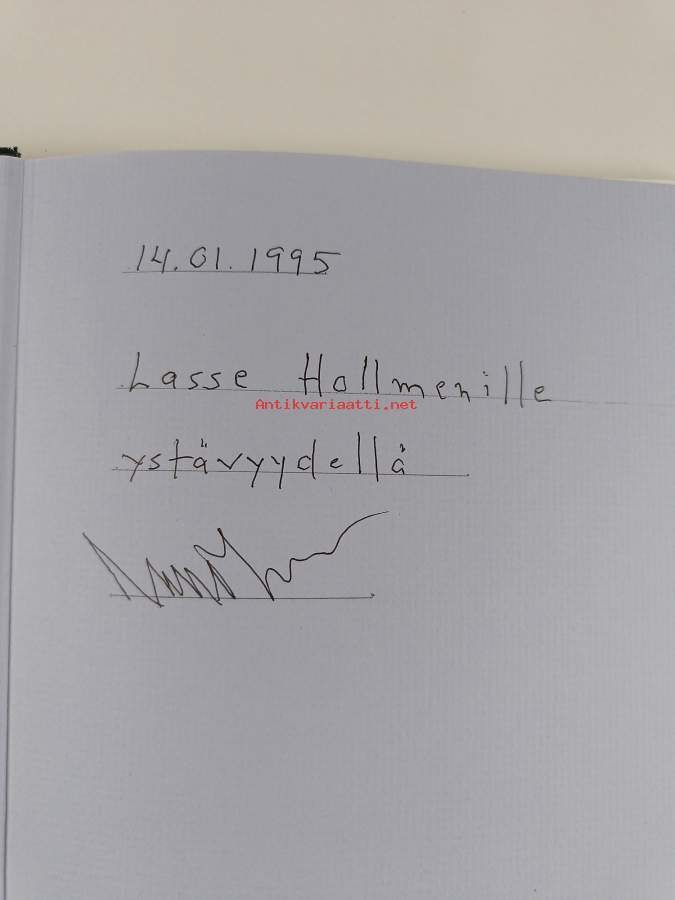 14.01.1995
Lasse Hollmenille
Antikvariaatti.net
ystävyydellä